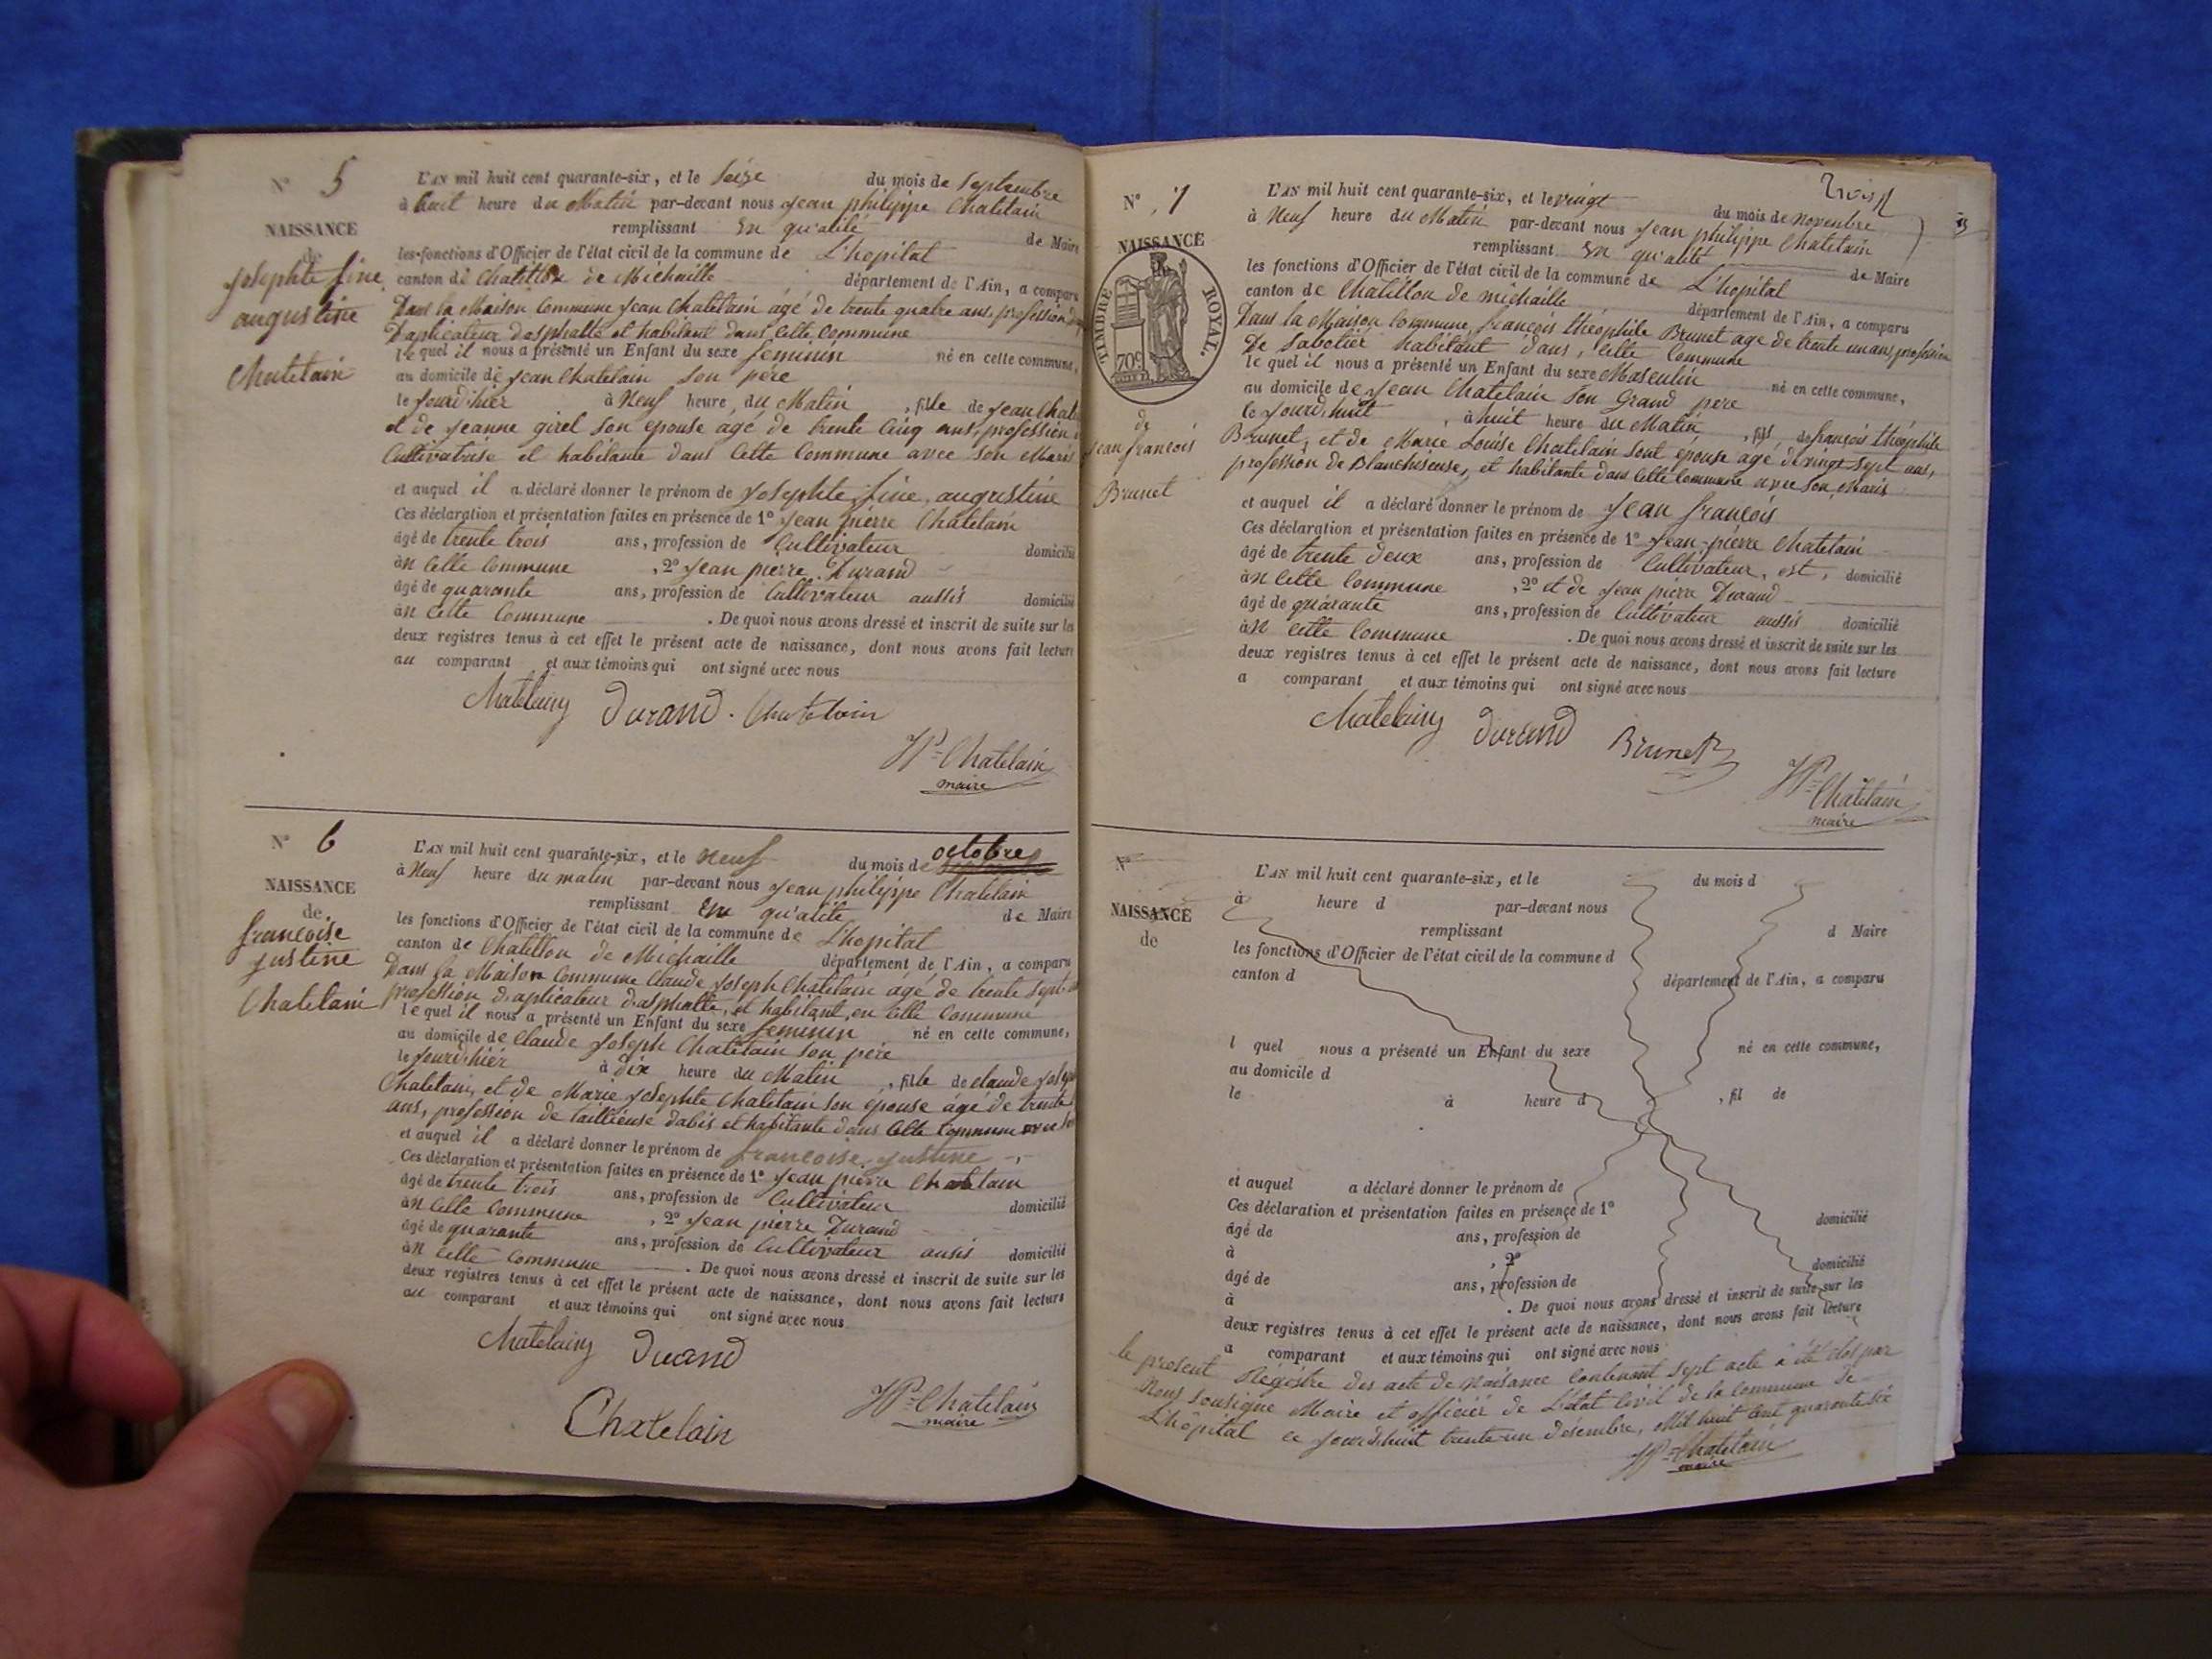 N° 5
NAISSANCE
de
Josephte fine
augustine
Chatelain
L'AN mil huit cent quarante-six, et le Seize du mois de Septembre
à huit heure du Matin par-devant nous Jean philippe Chatelain
remplissant En qu'alité de Maire
les fonctions d'Officier de l'état civil de la commune de L'hopital
canton de Chatillon de Michaille département de l'Ain, a comparu
Dans la Maison Commune Jean Chatelain âgé de trente quatre ans, profession
D'aplicateur dasphalte et habitant dans Cette Commune
le quel il nous a présenté un Enfant du sexe feminin né en cette commune,
au domicile de Jean Chatelain Son père
le Jourd'hier à Neuf heure du Matin, fille de Jean Chate
et de Jeanne girel Son epouse agé de trente Cinq ans, profession
Cultivatrise et habitante dans Cette Commune avec Son Maris
et auquel il a déclaré donner le prénom de Josephte, fine, augustine
Ces déclaration et présentation faites en présence de 1° Jean pierre Chatelain
âgé de trente trois ans, profession de Cultivateur domicilié
àn Cette Commune, 2° Jean pierre Durand
âgé de quarante ans, profession de Cultivateur aussis domicilié
àn Cette Commune. De quoi nous avons dressé et inscrit de suite sur les
deux registres tenus à cet effet le présent acte de naissance, dont nous avons fait lecture
au comparant et aux témoins qui ont signé avec nous
Chatelain Durand. Chatelain
JP=Chatelain
maire
N° 6
NAISSANCE
de
francoise
justine
Chatelain
L'AN mil huit cent quarante-six, et le Neuf du mois de octobre
à Neuf heure du matin par-devant nous Jean philippe Chatelain
remplissant En qu'alité de Maire
les fonctions d'Officier de l'état civil de la commune de L'hopital
canton de Chatillon de Michaille département de l'Ain, a comparu
Dans la Maison Commune Claude Joseph Chatelain agé de trente Sept
profession d'aplicateur d'asphalte, et habitant, en Cette Commune
le quel il nous a présenté un Enfant du sexe feminin né en cette commune,
au domicile de Claude Joseph Chatelain Son père
le Jourd'hier à dix heure du Matin, fille de claude Josep
Chatelain, et de Marie Josephte Chatelain Son epouse âgé de trente
ans, profession de taillieuse dabis et habitante dans Cette Commune avec
et auquel il a déclaré donner le prénom de francoise, justine
Ces déclaration et présentation faites en présence de 1° Jean pierre Chatelain
âgé de trente trois ans, profession de Cultivateur domicilié
àn Cette Commune, 2° Jean pierre Durand
âgé de quarante ans, profession de Cultivateur ausis domicilié
àn Cette Commune. De quoi nous avons dressé et inscrit de suite sur les
deux registres tenus à cet effet le présent acte de naissance, dont nous avons fait lecture
au comparant et aux témoins qui ont signé avec nous
Chatelain Durand
Chatelain
JP=Chatelain
maire
N° 7
NAISSANCE
TIMBRE ROYAL.
70c
de
Jean francois
Brunet
L'AN mil huit cent quarante-six, et le vingt du mois de novembre
à Neuf heure du Matin par-devant nous Jean philippe Chatelain
remplissant En qu'alité de Maire
les fonctions d'Officier de l'état civil de la commune de L'hopital
canton de Chatillon de michaille département de l'Ain, a comparu
Dans la Maison Commune, francois théophile Brunet age de trente un ans, profession
De Sabotier habitant dans, Cette Commune
le quel il nous a présenté un Enfant du sexe Masculin né en cette commune,
au domicile de Jean Chatelain Son Grand pere
le Jourd'huit, à huit heure du Matin, fils de francois théophile
Brunet, et de Marie Louise Chatelain Sont épouse agé de vingt-sept ans,
profession de Blanchiseuse, et habitante dans Cette Commune avec Son Maris
et auquel il a déclaré donner le prénom de Jean francois
Ces déclaration et présentation faites en présence de 1° Jean-pierre Chatelain
âgé de trente deux ans, profession de Cultivateur, est, domicilié
àn Cette Commune, 2° et de Jean pierre Durand
âgé de quarante ans, profession de Cultivateur aussis domicilié
àn Cette Commune. De quoi nous avons dressé et inscrit de suite sur les
deux registres tenus à cet effet le présent acte de naissance, dont nous avons fait lecture
a comparant et aux témoins qui ont signé avec nous
Chatelain Durand Brunet
JP=Chatelain
maire
N°
NAISSANCE
de
L'AN mil huit cent quarante-six, et le du mois d
à heure d par-devant nous
remplissant d Maire
les fonctions d'Officier de l'état civil de la commune d
canton d département de l'Ain, a comparu
l quel nous a présenté un Enfant du sexe né en cette commune,
au domicile d
le à heure d, fil de
et auquel a déclaré donner le prénom de
Ces déclaration et présentation faites en présence de 1°
âgé de ans, profession de domicilié
à , 2°
âgé de ans, profession de domicilié
à . De quoi nous avons dressé et inscrit de suite sur les
deux registres tenus à cet effet le présent acte de naissance, dont nous avons fait lecture
a comparant et aux témoins qui ont signé avec nous
le present Régistre des acte de Naisance Contenant Sept acte à été clos par
Nous Sousigne Maire et officier de L'état Civil de la Commune de
L'hôpital ce Jourd'huit trente-un désembre, Mil huit Cent quarante Six
JP=Chatelain
maire